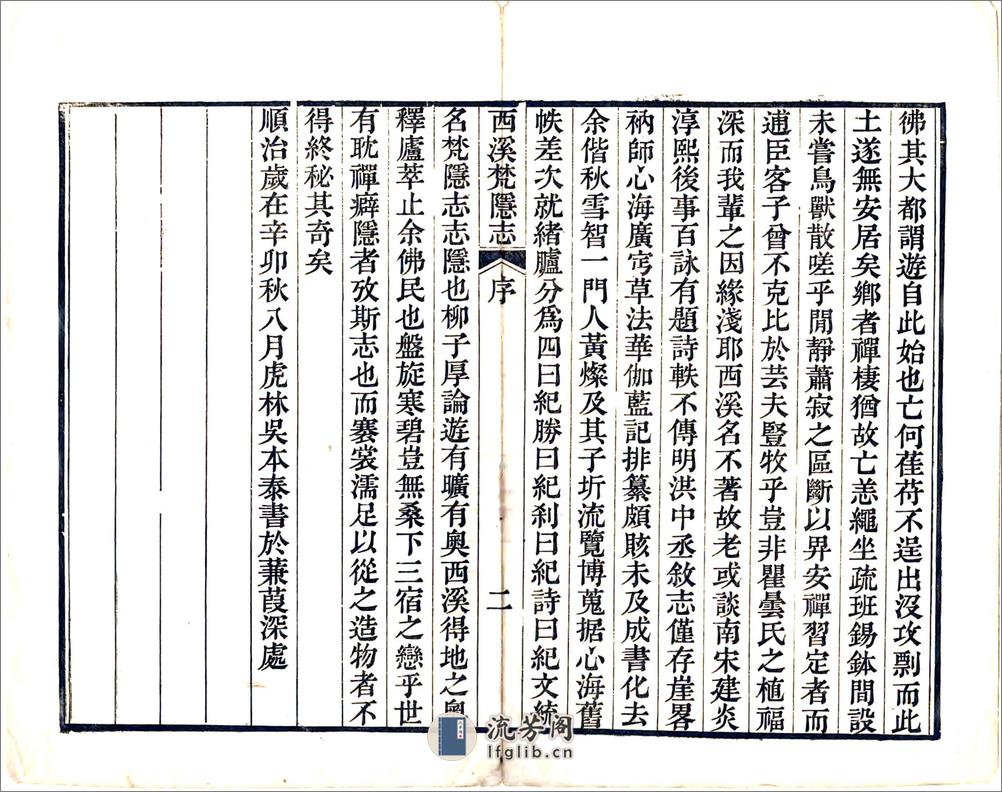 彿其大都謂遊自此始也亡何萑苻不逞出沒攻剽而此
土遂無安居矣鄉者禪棲猶故亡恙繩坐疏班錫鉢間設
未嘗鳥獸散嗟乎閒靜蕭寂之區斷以畀安禪習定者而
逋臣客子曾不克比於芸夫豎牧乎豈非瞿曇氏之植福
深而我輩之因緣淺耶西溪名不著故老或談南宋建炎
淳熙後事百詠有題詩軼不傳明洪中丞敘志僅存崖畧
衲師心海廣宆草法華伽藍記排纂頗賅未及成書化去
余偕秋雪智一門人黃燦及其子圻流覽博蒐据心海舊
帙差次就緒臚分爲四曰紀勝曰紀刹曰紀詩曰紀文統
西溪梵隱志 序 二
名梵隱志志隱也柳子厚論遊有曠有奧西溪得地之奧
釋廬萃止余佛民也盤旋寒碧豈無桑下三宿之戀乎世
有耽禪癖隱者攷斯志也而褰裳濡足以從之造物者不
得終秘其奇矣
順治歲在辛卯秋八月虎林吳本泰書於蒹葭深處
流芳阁
lfglib.cn